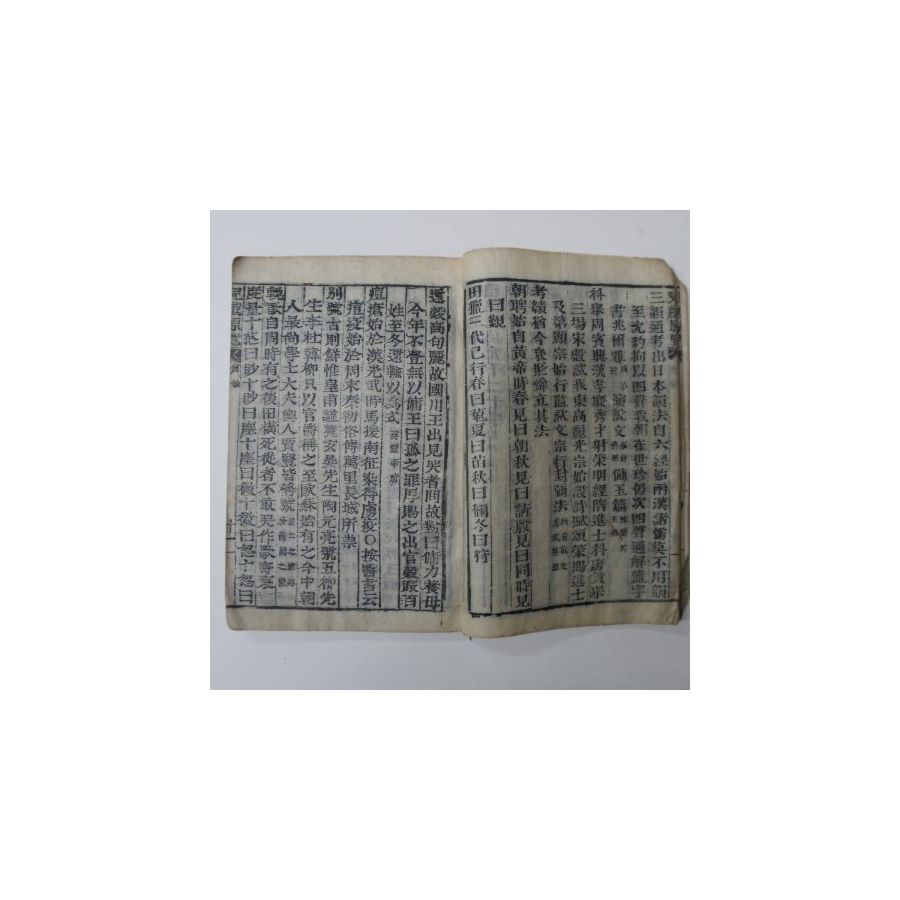 三韻通考出日本韻法自六經始而漢諸儒莫不用韻
至沈約拘以四聲我朝在世珍仍次四聲通解藍字
書兆爾雅 演說文 備玉篇
科擧周賓興漢孝廉秀才射策明經隋進士科諸貢米
三場宋殿試我東高麗光宗始設詩賦頌策賜進士
及第顯宗始行監試文宗行封彌法
考績猶今衰貶舜立其法
朝聘始自黃帝時春見曰朝秋見曰請殷見曰同時見
曰觀
田獵三代已行春曰蒐夏曰苗秋曰獮冬曰狩
還穀高句麗故國川王出見哭者問故對曰傭力養母
今年不登無以傭王曰孤之罪厚賜之出官穀賑百
姓至冬還輸以爲式
痘瘡始於漢光武時馬援南征染得虜疫○按醫書云
痘疫始於周末秦初俗傳萬里長城所祟
別號古則鮮惟皇甫謐玄晏先生陶元亮號五柳先
生李杜韓柳只以官爵稱之至歐蘇始有之今中朝
人最尙學士大夫輿人賈豎皆稱號
輓歌自周時有之後田橫死從者不敢哭作歌寄哀
度量十忽曰眇十眇曰塵十塵曰微